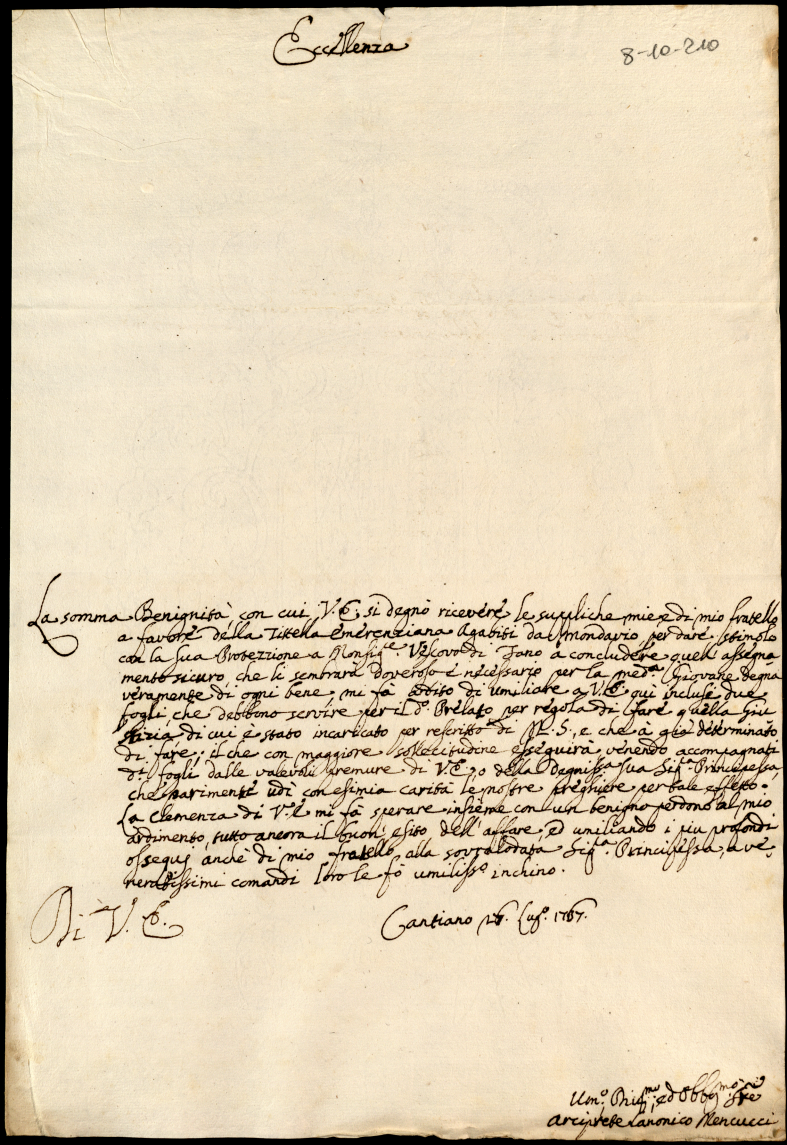 Eccellenza
8-10-210
La somma Benignità, con cui V. E. si degnò ricevere le suppliche mie e di mio fratello
a favore della Zittella Emerenziana Agabiti da Mondavio per dare stimolo
con la Sua Protezzione a Monsig.re Vescovo di Fano a concludere quell' assegna
mento sicuro, che li sembrarà doveroso e necessario per la med.a Giovane degna
veramente di ogni bene, mi fà ardito di umiliare a V. E. qui incluse due
fogli che debbono servire per il d.o Prelato per regola di fare quella Giu
stizia di cui è stato incaricato per rescritto di N. S., e che à già determinato
di fare; il che con maggiore sollecitudine esseguirà venendo accompagnati
di fogli dalle valevoli premure di V. E., o della Degnissa Sua Sig.a Principessa,
che parimente udì con esimia carità le nostre preghiere per tale effetto.
La Clemenza di V. E. mi fà sperare insieme con un benigno perdono al mio
ardimento, tutto ancora il buon' esito dell' affare, ed umiliando i più profondi
ossequj anche di mio fratello alla sovralodata Sig.a Principessa, a ve
neratissimi comandi loro le fò umiliss.o inchino.
Di V. E.
Cantiano 26. Lug.o 1767.
Um.o ed Obb.mo
Arciprete Canonico Mencucci